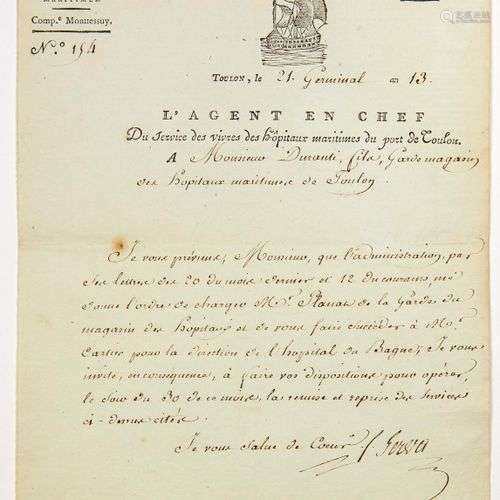 MARITIMES
Comp.e Montessuy.
N.o 154
Toulon, le 21 Germinal an 13.
L'AGENT EN CHEF
Du Service des vivres des hôpitaux maritimes du port de Toulon.
A Monsieur Duranti, fils, Garde magasin
des hopitaux maritimes de Toulon
Je vous préviens, Monsieur, que l'administration, par
ses lettres des 20 du mois dernier et 12 du courant, me
donne l'ordre de charger Mr. de la Garde du
magasin des hôpitaux et de vous faire succéder à Mr.
Cartier pour la direction de l'hopital du Bagne; Je vous
invite, en conséquence, à faire vos dispositions pour opérer,
le soir du 30 de ce mois, la remise et reprise des services
ci-dessus cités.
Je vous salue de Coeur